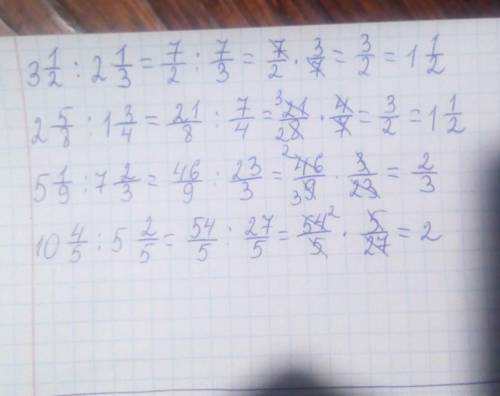 3 1/2 : 2 1/3 = 7/2 : 7/3 = 7/2 · 3/7 = 3/2 = 1 1/2
2 5/8 : 1 3/4 = 21/8 : 7/4 = ³21/₂8 · 4/7 = 3/2 = 1 1/2
5 1/9 : 7 2/3 = 46/9 : 23/3 = ²46/₃9 · 3/23 = 2/3
10 4/5 : 5 2/5 = 54/5 : 27/5 = 54²/5 · 5/27 = 2